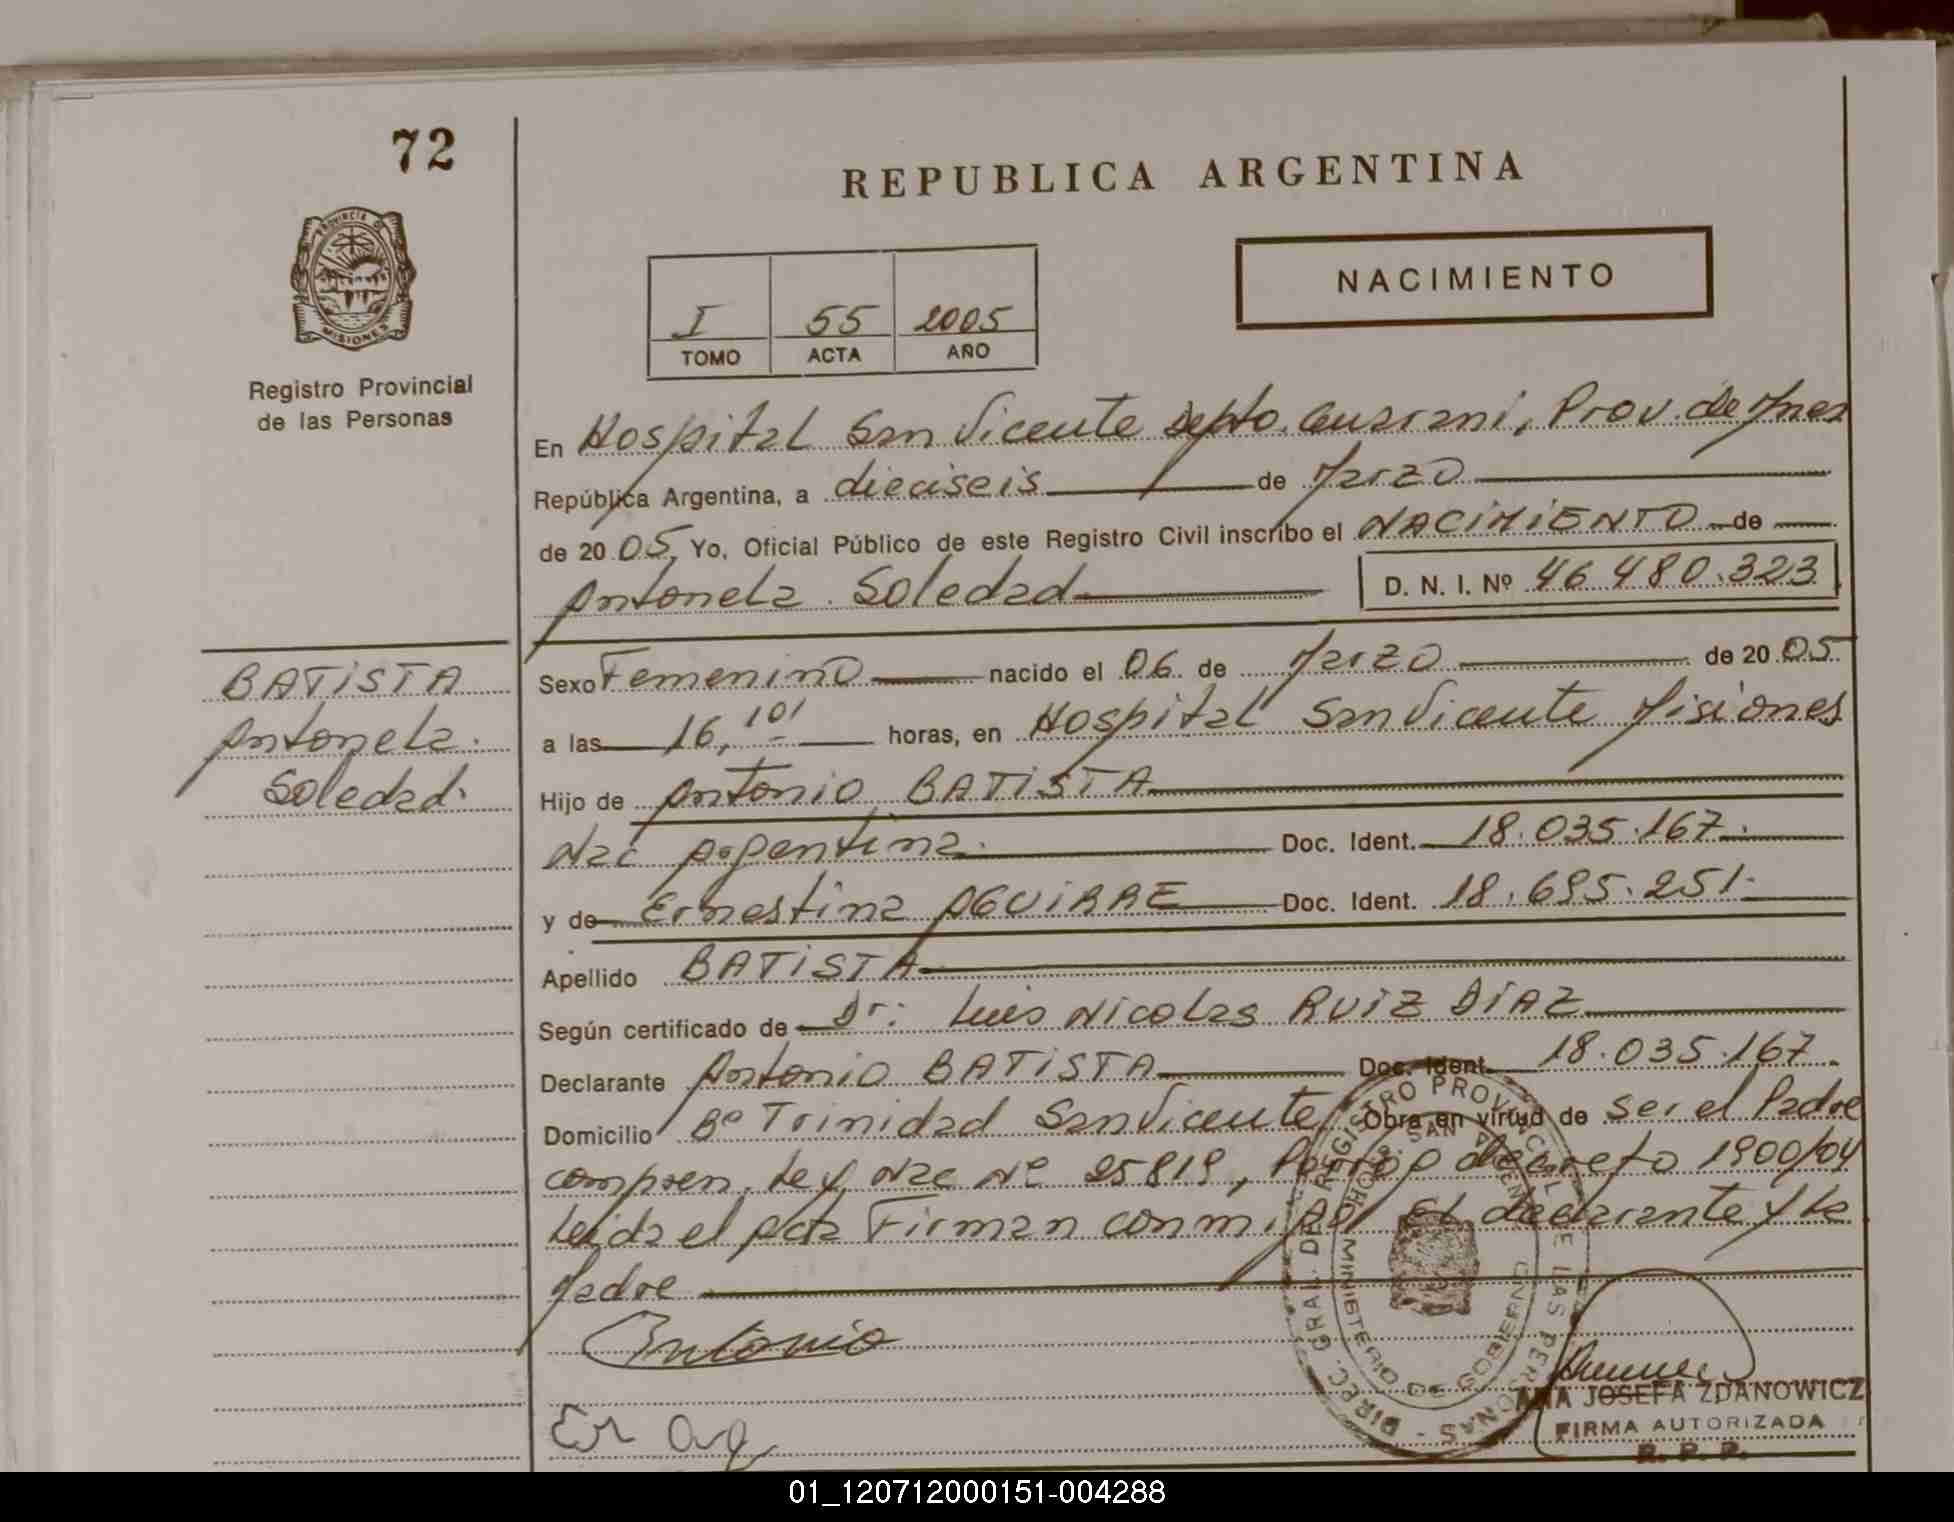 72
REPUBLICA ARGENTINA
PROVINCIA DE
MISIONES
Registro Provincial
de las Personas
I 55 2005
TOMO ACTA AÑO
NACIMIENTO
En Hospital San Vicente Depto. Guarani, Prov. de Mnes
República Argentina, a dieciseis de Marzo
de 2005, Yo, Oficial Público de este Registro Civil inscribo el NACIMIENTO de
Antonela Soledad D. N. I. Nº 46.480.323
BATISTA
Antonela
Soledad.
Sexo Femenino nacido el 06 de Marzo de 2005
a las 16,10' horas, en Hospital San Vicente Misiones
Hijo de Antonio BATISTA
Nac Argentina. Doc. Ident. 18.035.167.
y de Ernestina AGUIRRE Doc. Ident. 18.695.251.
Apellido BATISTA
Según certificado de Dr: Luis Nicolas RUIZ DIAZ
Declarante Antonio BATISTA Doc. Ident. 18.035.167.
Domicilio Bº Trinidad San Vicente Obra en virtud de ser el Padre
compren. Ley Nac Nº 25819, decreto 1900/04
Leida el Acta Firman conmigo el declarante y la
Madre
Antonio
DIREC. GRAL. DEL REGISTRO PROVINCIAL DE LAS PERSONAS
MINISTERIO DE GOBIERNO
SAN VICENTE
ANA JOSEFA ZDANOWICZ
FIRMA AUTORIZADA
R. P. P.
01_120712000151-004288